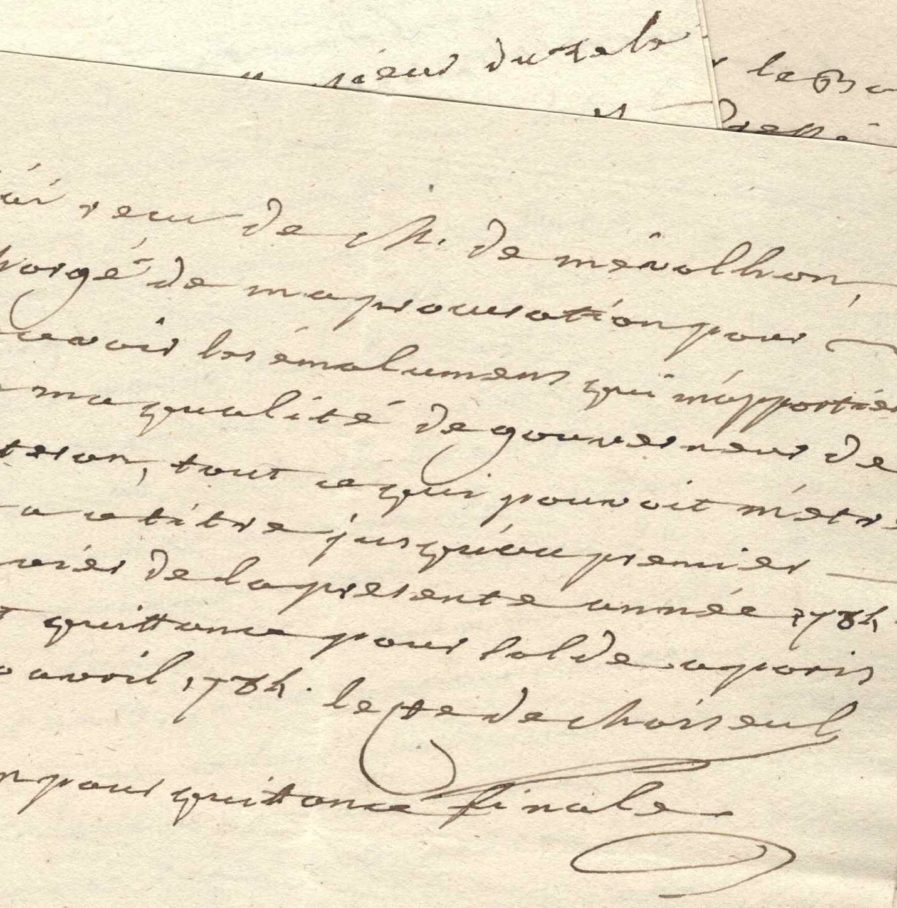 sieur du
le Ba
ai recu de M. de mévolhon,
hargé de ma procuration pour
cevoir les émolumens qui m'apportie
ma qualité de gouverneur de
teron, tout ce qui pouvoit métre
a ce titre jusqu'au premier
vier de la presente année 1784
quittance pour solde a paris
avril 1784. le cte de choiseul
n pour quittance finale